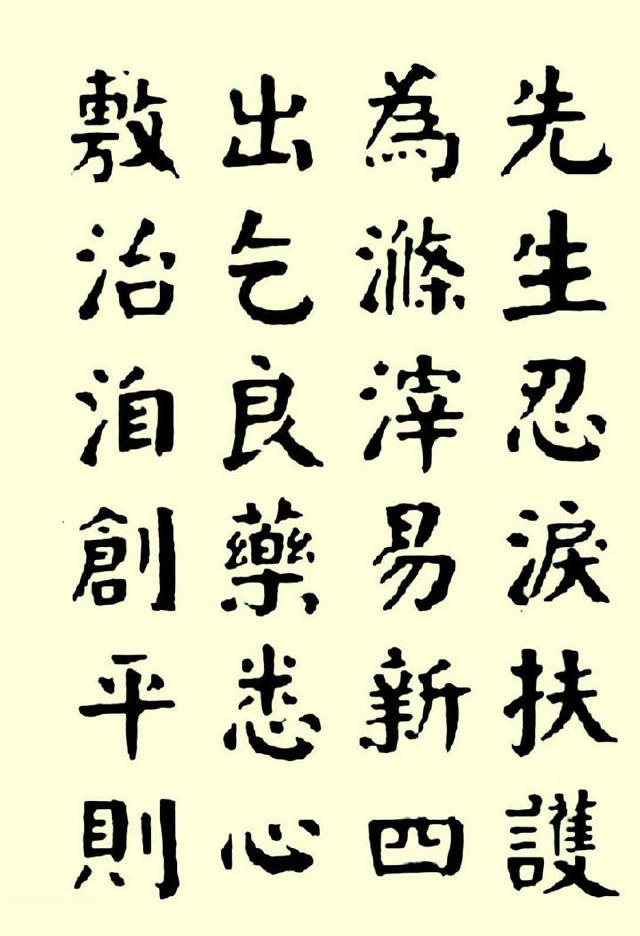 先生忍淚扶護
為滌滓易新四
出乞良藥悉心
敷治洎創平則